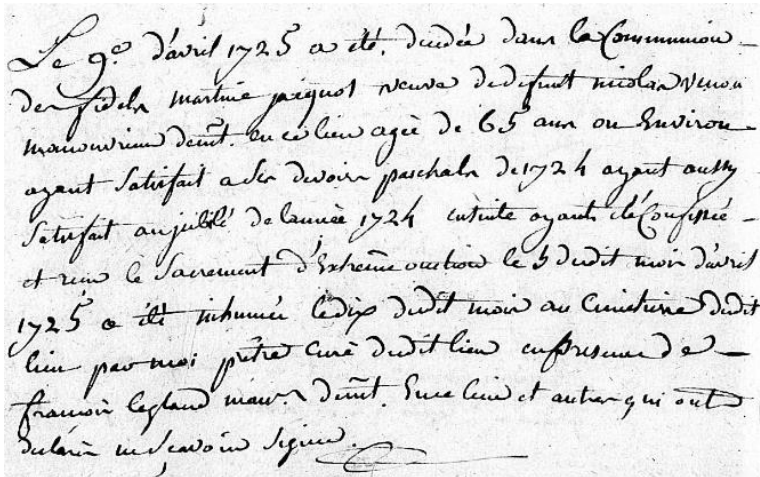 Le 9e. d'avril 1725 a été. decedée dans la Communion
des fideles martine jacquot veuve de defunt nicolas
manouvrier demt. en ce lieu agée de 65 ans ou Environ
ayant Satisfait a Ses devoirs paschals de 1724 ayant aussy
Satisfait au jubilé de l'année 1724 ensuite ayant été Confessée
et reçu le Sacrement d'Extreme onction le 5 dudit mois d'avril
1725 a été inhumée le dix dudit mois au Cimetiere dudit
lieu par moi prêtre Curé dudit lieu en presence de
francois legland man. demt. En ce lieu et autres qui ont
declaré ne Scavoir Signer.